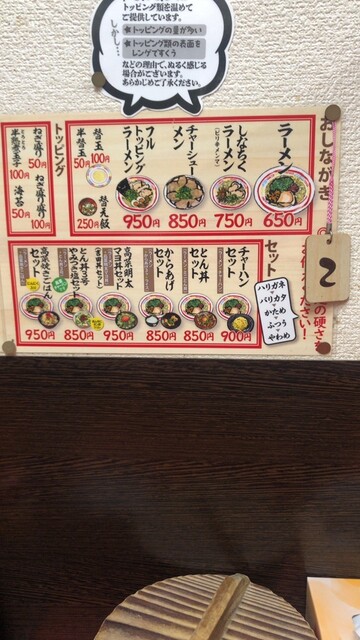 トッピング類を温めて
ご提供しています。
しかし…
★トッピングの量が多い
★トッピング類の表面を
レンゲですくう
などの理由で、ぬるく感じる
場合がございます。
あらかじめご了承ください。
おしながき
ラーメン
650円
しなちくラーメン
(ピリ辛メンマ)
750円
チャーシューメン
850円
フルトッピングラーメン
950円
替玉 100円
半替玉 50円
替え飯
250円
トッピング
ねぎ盛り 50円
ねぎ盛り盛り 100円
半熟煮玉子 100円
海苔 100円
セット
チャーハンセット
900円
とん丼セット
850円
からあげセット
850円
高菜明太マヨ丼セット
950円
とん丼3号やみつき塩セット
850円
高菜焼きごはんセット
950円
の硬さを
ハリガネ
バリカタ
かため
ふつう
やわめ
2